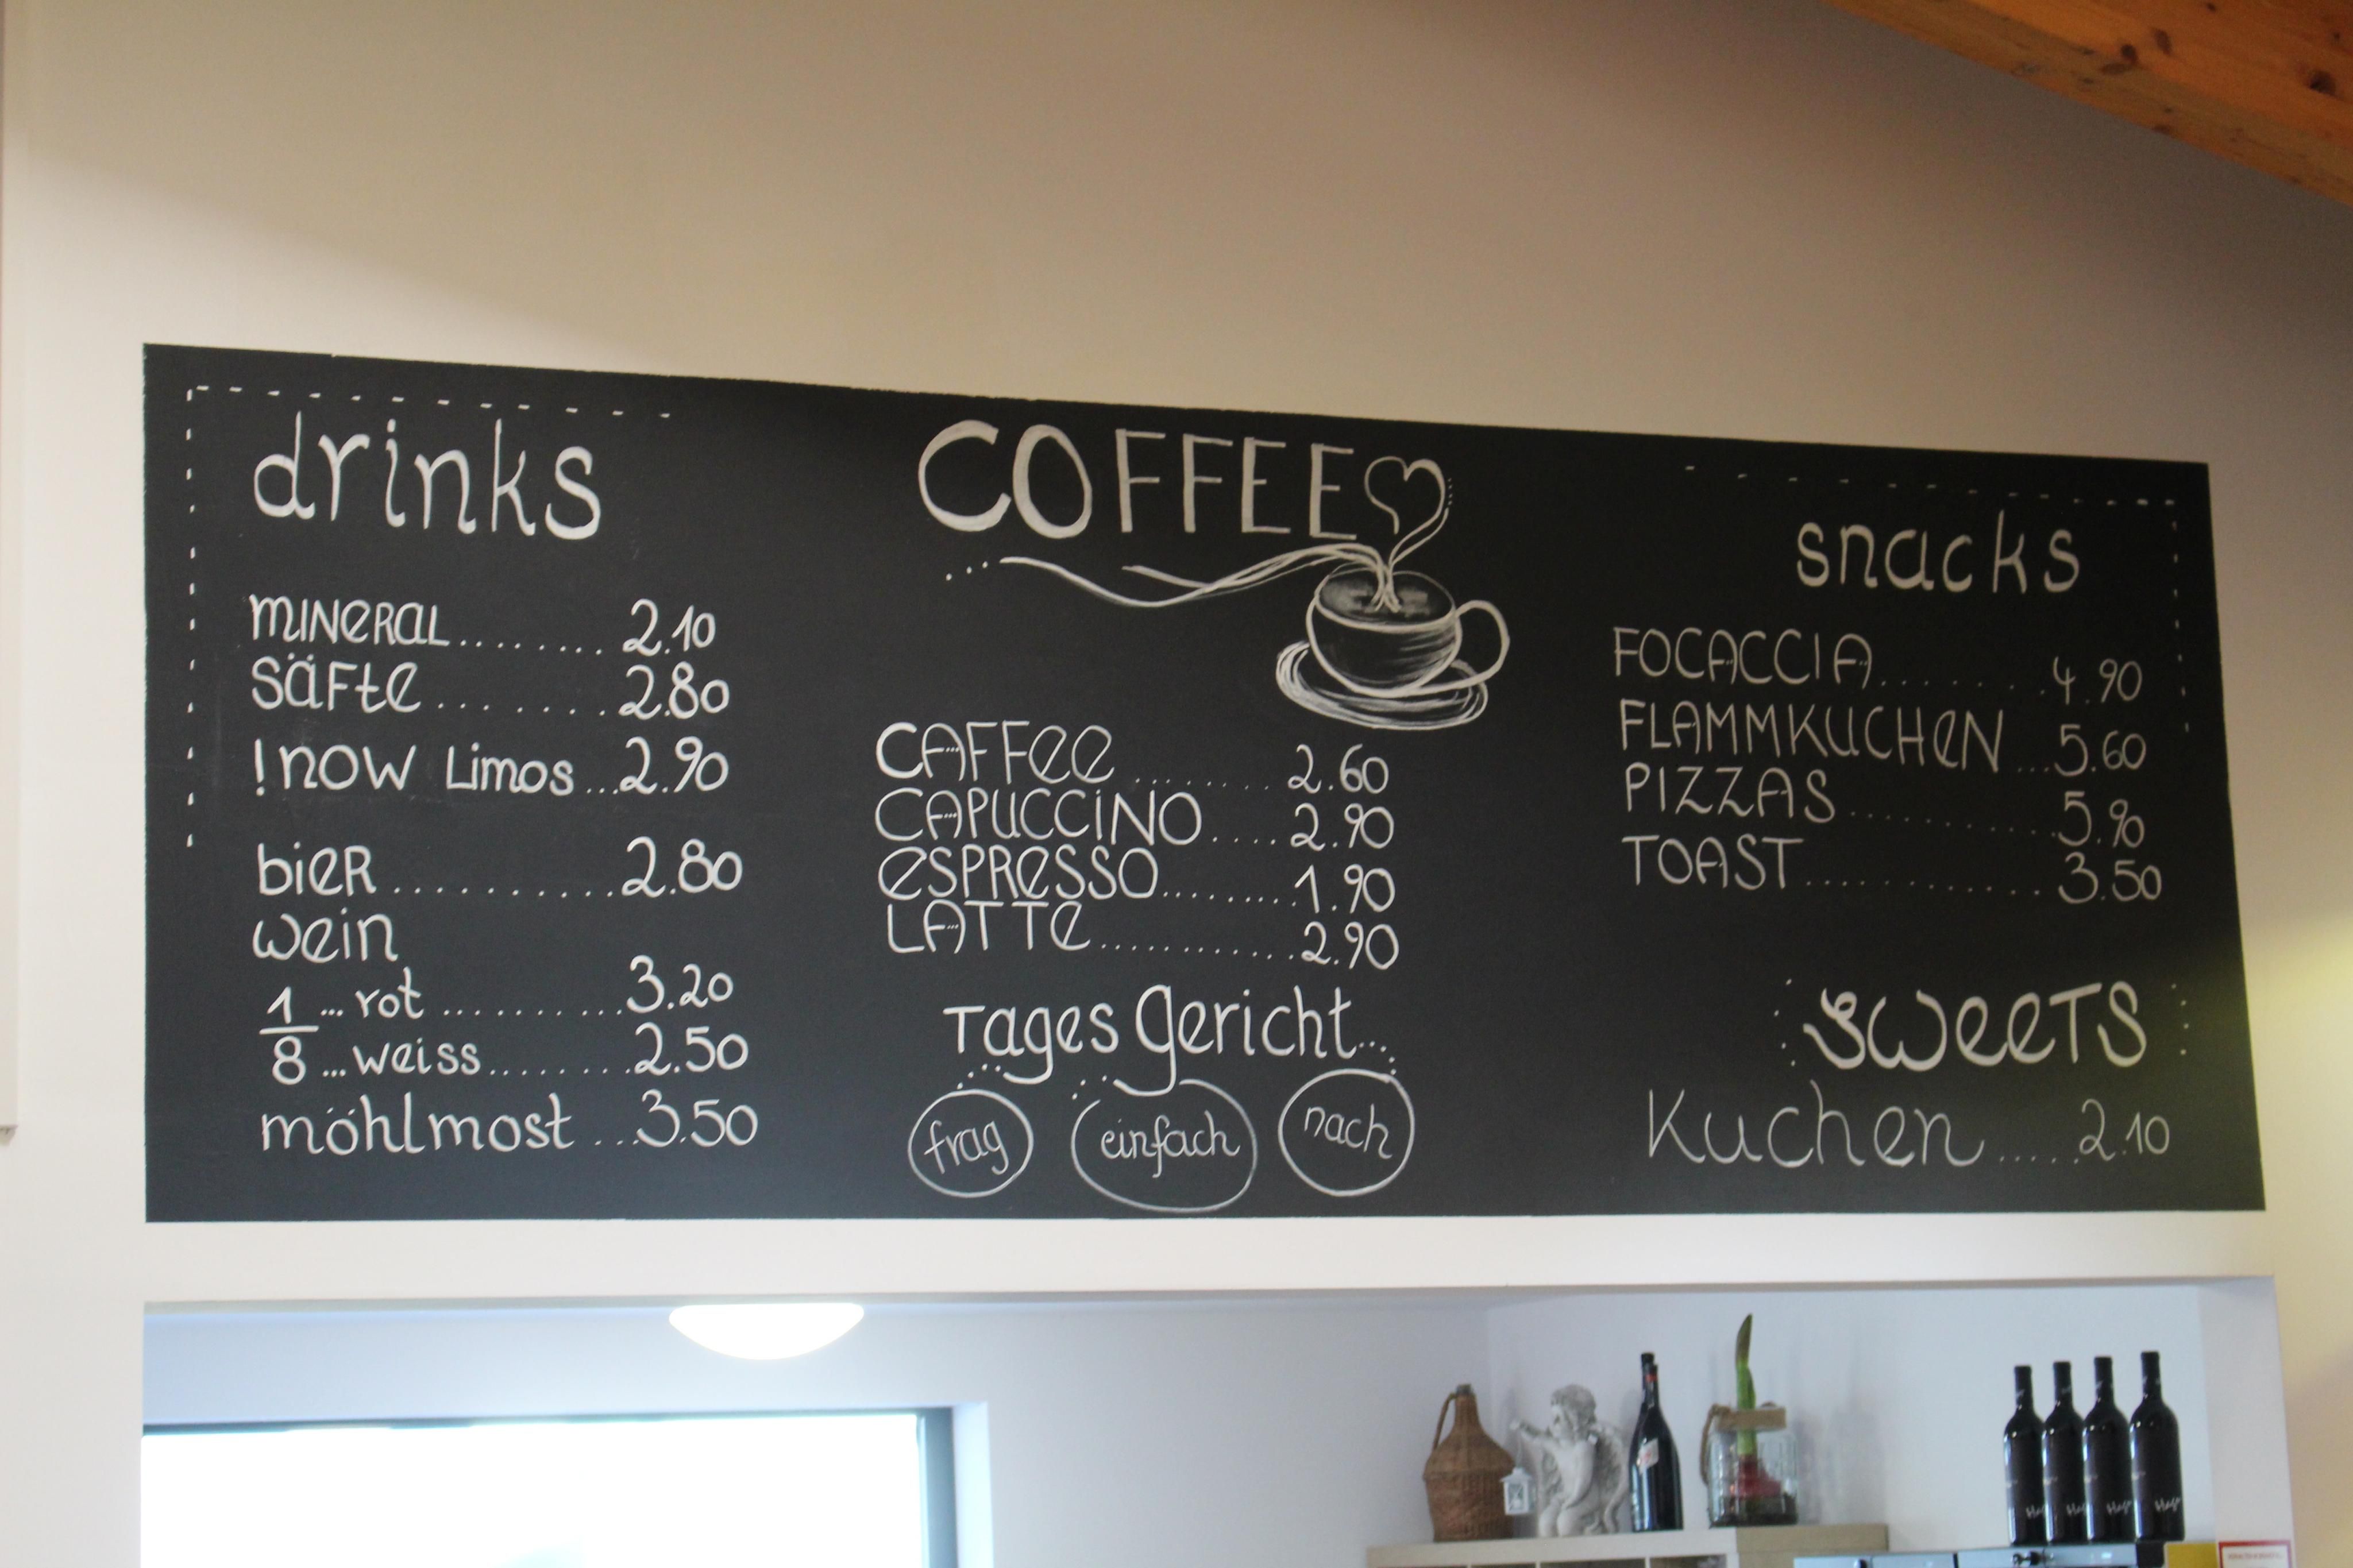 drinks
MINERAL........ 2.10
SÄFTE........ 2.80
!NOW Limos...2.90
bier...........2.80
wein
1/8 ...rot..........3.20
...weiss........2.50
möhlmost...3.50
COFFEE
CAFFEE........ 2.60
CAPUCCINO....2.90
ESPRESSO........1.90
LATTE............2.90
Tages gericht...
frag einfach nach
snacks
FOCACCIA.......4.90
FLAMMKUCHEN...5.60
PIZZAS............5.90
TOAST.............3.50
SWEETS
Kuchen.....2.10